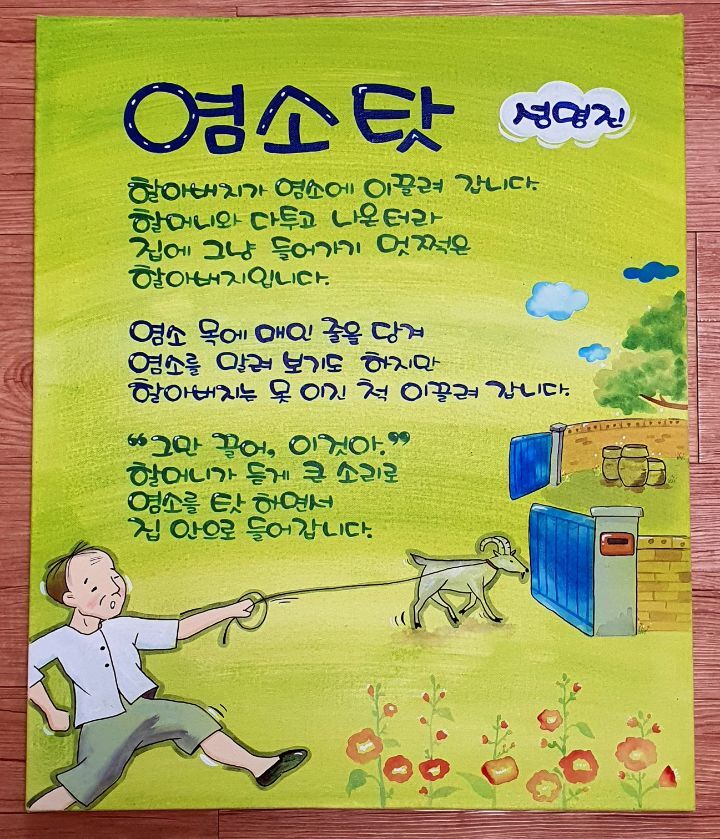 염소 탓
성명진
할아버지가 염소에 이끌려 갑니다.
할머니와 다투고 나온터라
집에 그냥 들어가기 멋쩍은
할아버지입니다.
염소 목에 매인 줄을 당겨
염소를 말려 보기도 하지만
할아버지는 못 이긴 척 이끌려 갑니다.
“그만 끌어, 이것아.”
할머니가 듣게 큰 소리로
염소를 탓 하면서
집 안으로 들어갑니다.